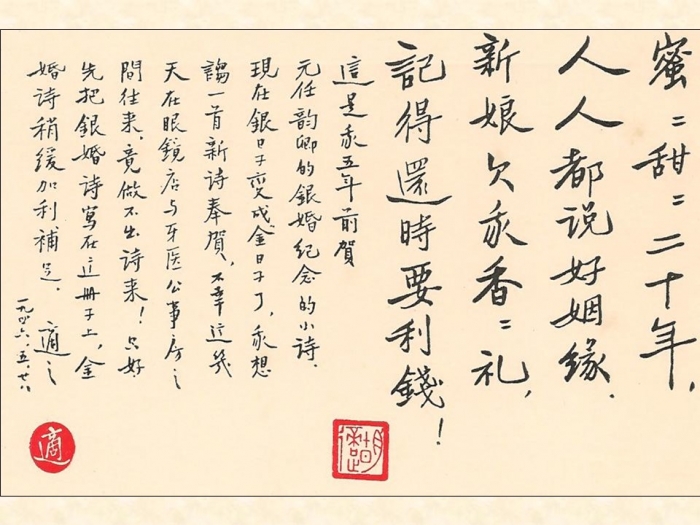 蜜〻甜〻二十年，
人人都说好姻緣．
新娘欠我香〻礼，
記得還時要利錢！
這是我五年前賀
元任韵卿的銀婚紀念的小詩．
現在銀日子变成金日子了，我想
謅一首新詩奉賀，不幸这幾
天在眼鏡店与牙医公事房之
間往来，竟做不出詩来！只好
先把銀婚詩寫在这册子上，金
婚詩稍緩加利補足．
適之
一九四六．五．廿八
胡適
適